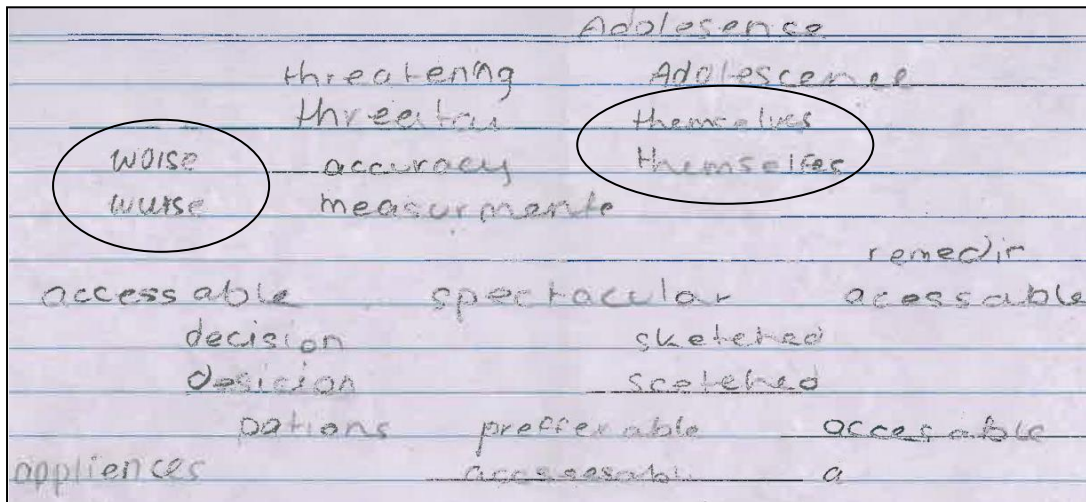 Adolesence
threatening Adolescence
threatai themselves
worse accuracy themselfes
wurse measurmente
remedir
accessable spectacular acessable
decision sketched
desicion scetched
pations prefferable accesable
appliences accessesabl a